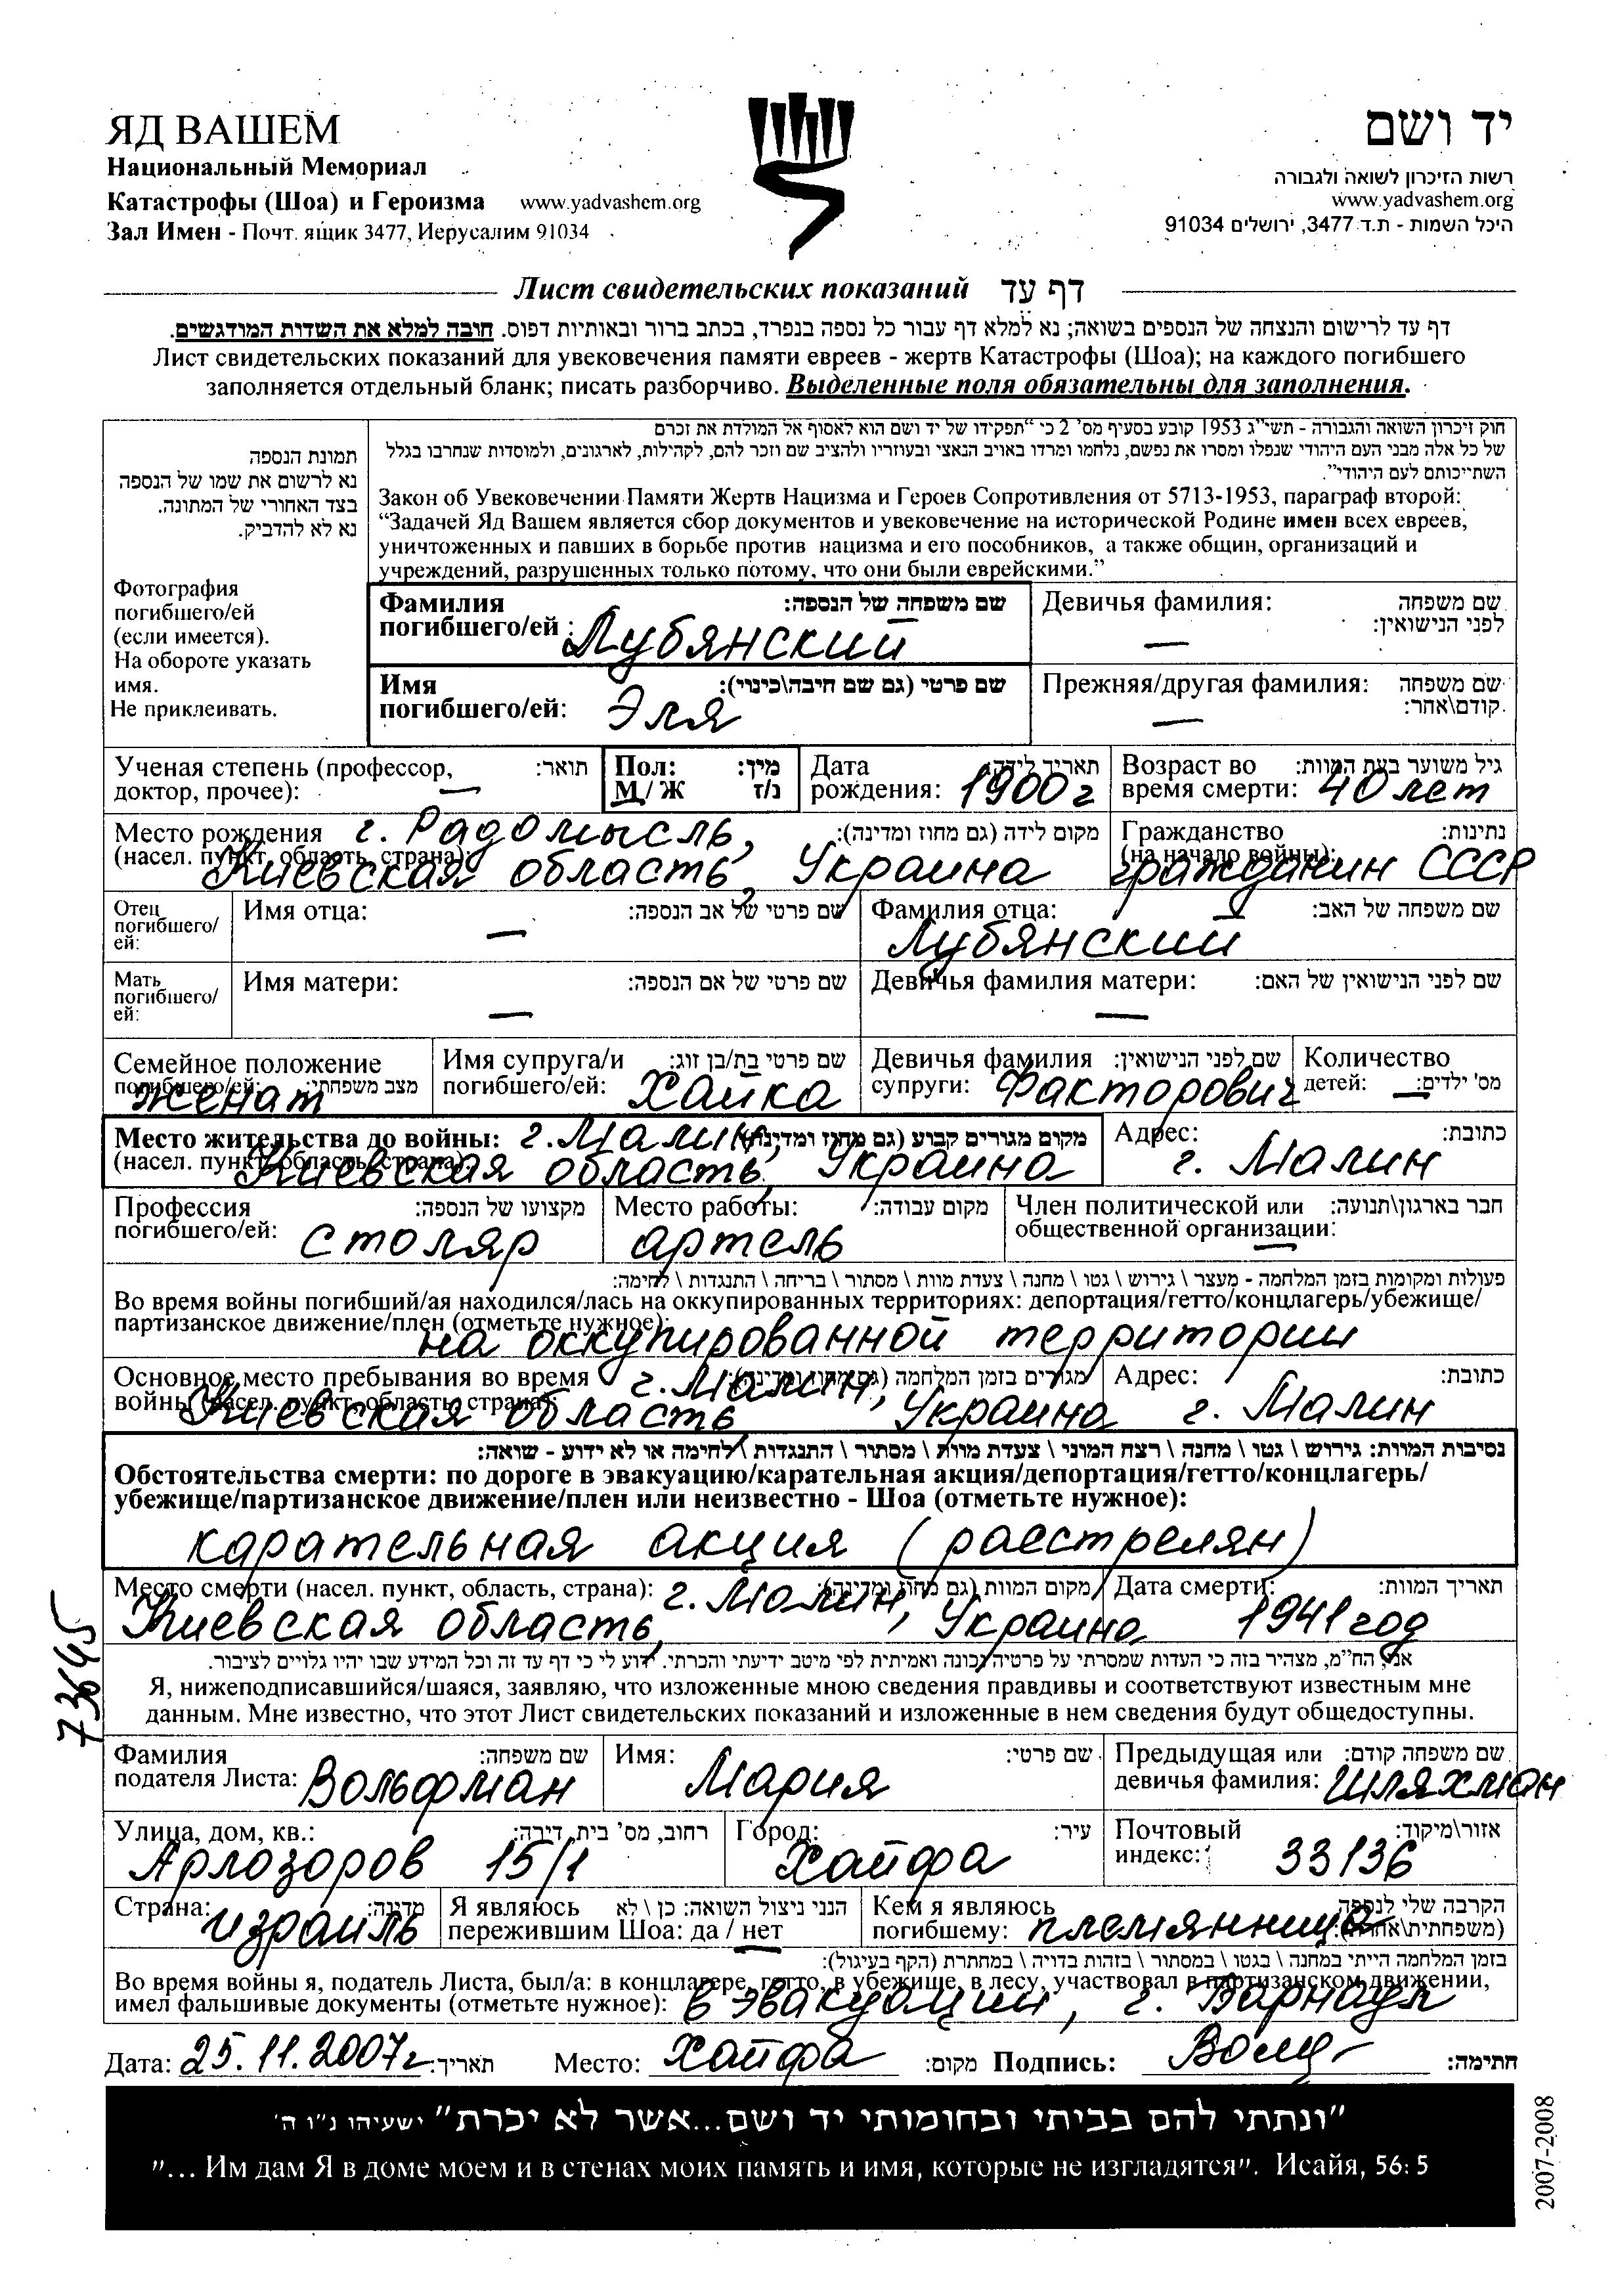 ЯД ВАШЕМ
Национальный Мемориал
Катастрофы (Шоа) и Героизма www.yadvashem.org
Зал Имен - Почт. ящик 3477, Иерусалим 91034
יד ושם
רשות הזיכרון לשואה ולגבורה
www.yadvashem.org
היכל השמות - ת.ד 3477, ירושלים 91034
Лист свидетельских показаний דף עד
דף עד לרישום והנצחה של הנספים בשואה; נא למלא דף עבור כל נספה בנפרד, בכתב ברור ובאותיות דפוס. חובה למלא את השדות המודגשים.
Лист свидетельских показаний для увековечения памяти евреев - жертв Катастрофы (Шоа); на каждого погибшего
заполняется отдельный бланк; писать разборчиво. Выделенные поля обязательны для заполнения.
תמונת הנספה
נא לרשום את שמו של הנספה
בצד האחורי של התמונה.
נא לא להדביק.
Фотография
погибшего/ей
(если имеется).
На обороте указать
имя.
Не приклеивать.
חוק זיכרון השואה והגבורה - תשי"ג 1953 קובע בסעיף מס' 2 כי "תפקידו של יד ושם הוא לאסוף אל המולדת את זכרם
של כל אלה מבני העם היהודי שנפלו ומסרו את נפשם, נלחמו ומרדו באויב הנאצי ובעוזריו ולהציב שם וזכר להם, לקהילות, לארגונים, ולמוסדות שנחרבו בגלל
השתייכותם לעם היהודי".
Закон об Увековечении Памяти Жертв Нацизма и Героев Сопротивления от 5713-1953, параграф второй:
“Задачей Яд Вашем является сбор документов и увековечение на исторической Родине имен всех евреев,
уничтоженных и павших в борьбе против нацизма и его пособников, а также общин, организаций и
учреждений, разрушенных только потому, что они были еврейскими.”
Фамилия שם משפחה של הנספה:
погибшего/ей : Лубянский
Девичья фамилия: שם משפחה
לפני הנישואין:
—
Имя שם פרטי (גם שם חיבה\כינוי):
погибшего/ей: Эля
Прежняя/другая фамилия: שם משפחה
קודם\אחר:
—
Ученая степень (профессор, תואר:
доктор, прочее): —
Пол: מין:
М / Ж ז/נ
Дата תאריך לידה:
рождения: 1900 г
Возраст во גיל משוער בעת המוות:
время смерти: 40 лет
Место рождения г. Радомысль, מקום לידה (גם מחוז ומדינה):
(насел. пункт, область, страна): Киевская область, Украина
Гражданство נתינות:
(на начало войны): гражданин СССР
Отец
погибшего/
ей:
Имя отца: — שם פרטי של אב הנספה:
Фамилия отца: שם משפחה של האב:
Лубянский
Мать
погибшего/
ей:
Имя матери: שם פרטי של אם הנספה:
—
Девичья фамилия матери: שם לפני הנישואין של האם:
—
Семейное положение
погибшего/ей: מצב משפחתי:
женат
Имя супруга/и שם פרטי בת/בן זוג:
погибшего/ей: Хайка
Девичья фамилия שם לפני הנישואין:
супруги: Факторович
Количество
детей: — מס' ילדים:
Место жительства до войны: г. Малин, מקום מגורים קבוע (גם מחוז ומדינה):
(насел. пункт, область, страна): Киевская область, Украина
Адрес: כתובת:
г. Малин
Профессия מקצועו של הנספה:
погибшего/ей: столяр
Место работы: מקום עבודה:
артель
Член политической или חבר בארגון\תנועה:
общественной организации: —
פעולות ומקומות בזמן המלחמה - מעצר \ גירוש \ גטו \ מחנה \ צעדת מוות \ מסתור \ בריחה \ התנגדות \ לחימה:
Во время войны погибший/ая находился/лась на оккупированных территориях: депортация/гетто/концлагерь/убежище/
партизанское движение/плен (отметьте нужное):
на оккупированной территории
Основное место пребывания во время г. Малин, מגורים בזמן המלחמה (גם מחוז ומדינה):
войны (насел. пункт, область, страна): Киевская область Украина
Адрес: כתובת:
г. Малин
נסיבות המוות: גירוש \ גטו \ מחנה \ רצח המוני \ צעדת מוות \ מסתור \ התנגדות \ לחימה או לא ידוע - שואה:
Обстоятельства смерти: по дороге в эвакуацию/карательная акция/депортация/гетто/концлагерь/
убежище/партизанское движение/плен или неизвестно - Шоа (отметьте нужное):
карательная акция (расстрелян)
Место смерти (насел. пункт, область, страна): г. Малин, מקום המוות (גם מחוז ומדינה):
Киевская область, Украина
Дата смерти: תאריך המוות:
1941 год
73645
אני, הח"מ, מצהיר בזה כי העדות שמסרתי על פרטיה נכונה ואמיתית לפי מיטב ידיעתי והכרתי. ידוע לי כי דף עד זה וכל המידע שבו יהיו גלויים לציבור.
Я, нижеподписавшийся/шаяся, заявляю, что изложенные мною сведения правдивы и соответствуют известным мне
данным. Мне известно, что этот Лист свидетельских показаний и изложенные в нем сведения будут общедоступны.
Фамилия שם משפחה:
подателя Листа: Вольфман
Имя: שם פרטי:
Мария
Предыдущая или שם משפחה קודם:
девичья фамилия: Шляхман
Улица, дом, кв.: רחוב, מס' בית, דירה:
Арлозоров 15/1
Город: עיר:
Хайфа
Почтовый אזור\מיקוד:
индекс: 33136
Страна: מדינה:
Израиль
Я являюсь הנני ניצול השואה: כן \ לא
пережившим Шоа: да / нет
Кем я являюсь הקרבה שלי לנספה
погибшему: племянница (משפחתית\אחרת):
בזמן המלחמה הייתי במחנה \ בגטו \ במסתור \ בזהות בדויה \ במחתרת (הקף בעיגול):
Во время войны я, податель Листа, был/а: в концлагере, гетто, в убежище, в лесу, участвовал в партизанском движении,
имел фальшивые документы (отметьте нужное): в эвакуации, г. Барнаул
Дата: 25.11.2007г תאריך: Место: Хайфа מקום: Подпись: חתימה:
"ונתתי להם בביתי ובחומותי יד ושם...אשר לא יכרת" ישעיהו נ"ו ה'
"... Им дам Я в доме моем и в стенах моих память и имя, которые не изгладятся". Исайя, 56: 5
2007-2008